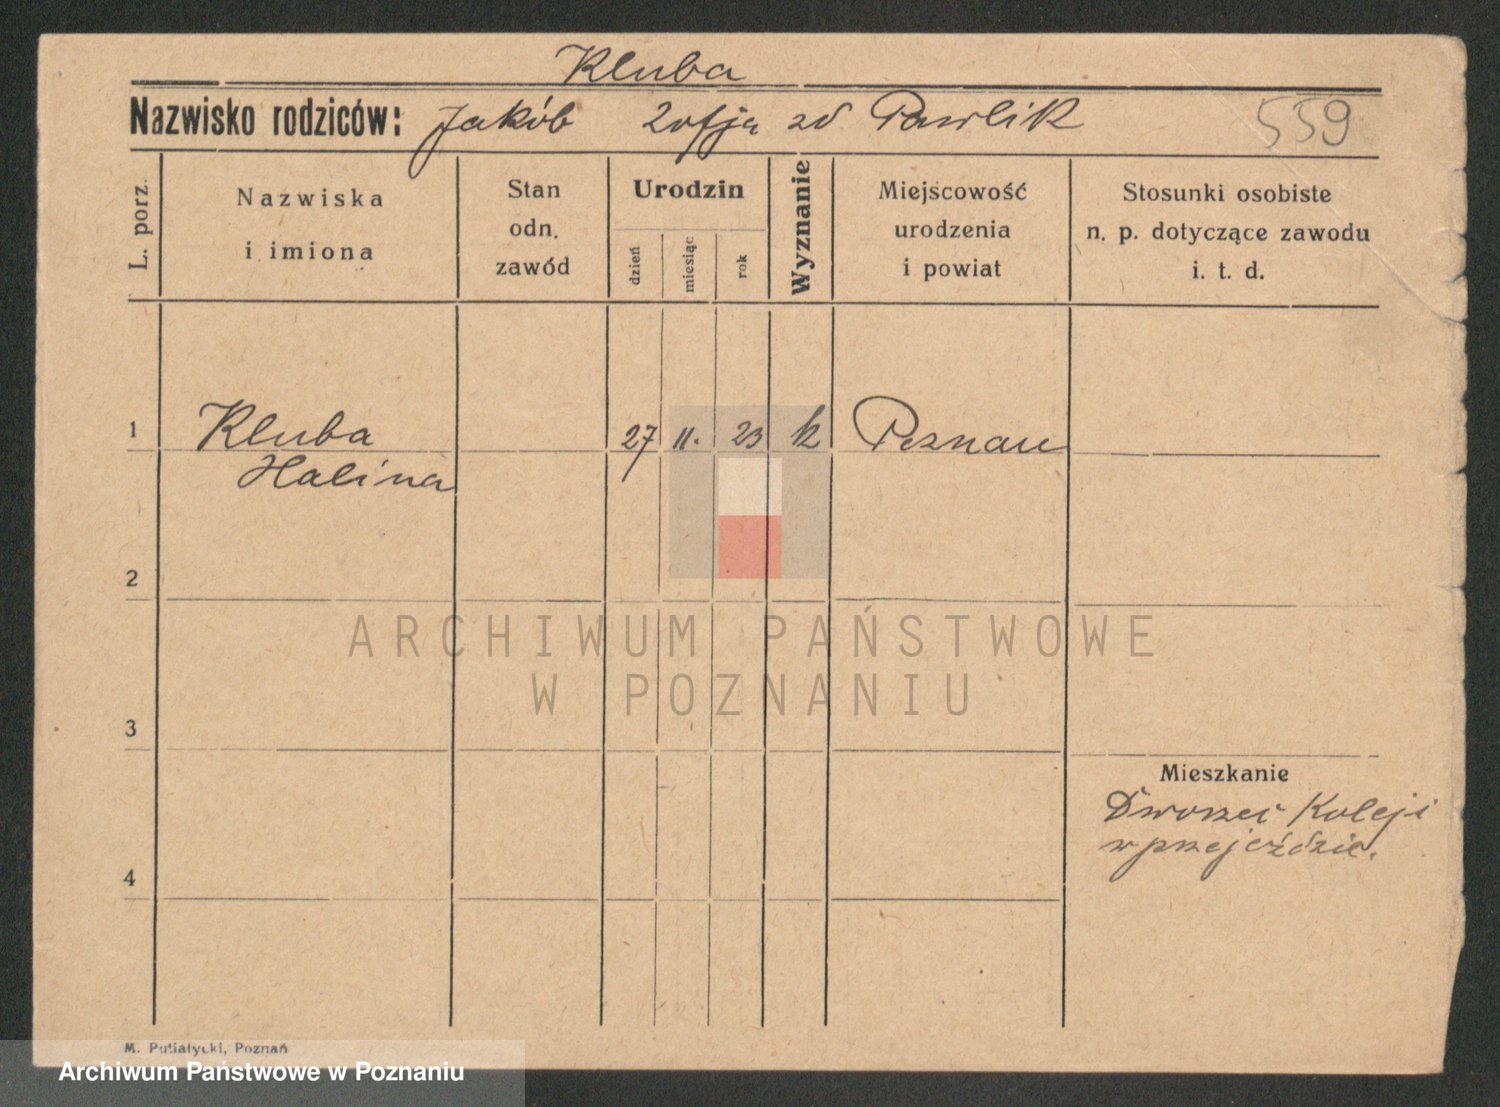 Kluba
Nazwisko rodziców: Jakób Zofja zd Pawlik 559
L. porz.
Nazwiska
i imiona
Stan
odn.
zawód
Urodzin
dzień
miesiąc
rok
Wyznanie
Miejscowość
urodzenia
i powiat
Stosunki osobiste
n. p. dotyczące zawodu
i. t. d.
1 Kluba 27 11. 23 k Poznań
Halina
2
ARCHIWUM PAŃSTWOWE
W POZNANIU
3
Mieszkanie
Dworzec Koleji
w przejeździe.
4
M. Putiatycki, Poznań
Archiwum Państwowe w Poznaniu